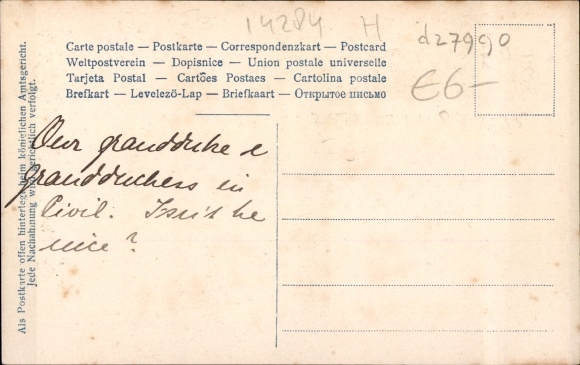 14284 H
d27990
€6-
Carte postale — Postkarte — Correspondenzkart — Postcard
Weltpostverein — Dopisnice — Union postale universelle
Tarjeta Postal — Cartões Postaes — Cartolina postale
Brefkart — Levelezö-Lap — Briefkaart — Открытое письмо
Our grandduke e
grandduchess in
Civil. Isn't he
nice?
Als Postkarte offen hinterlegt beim königlichen Amtsgericht.
Jede Nachahnung wird gerichtlich verfolgt.